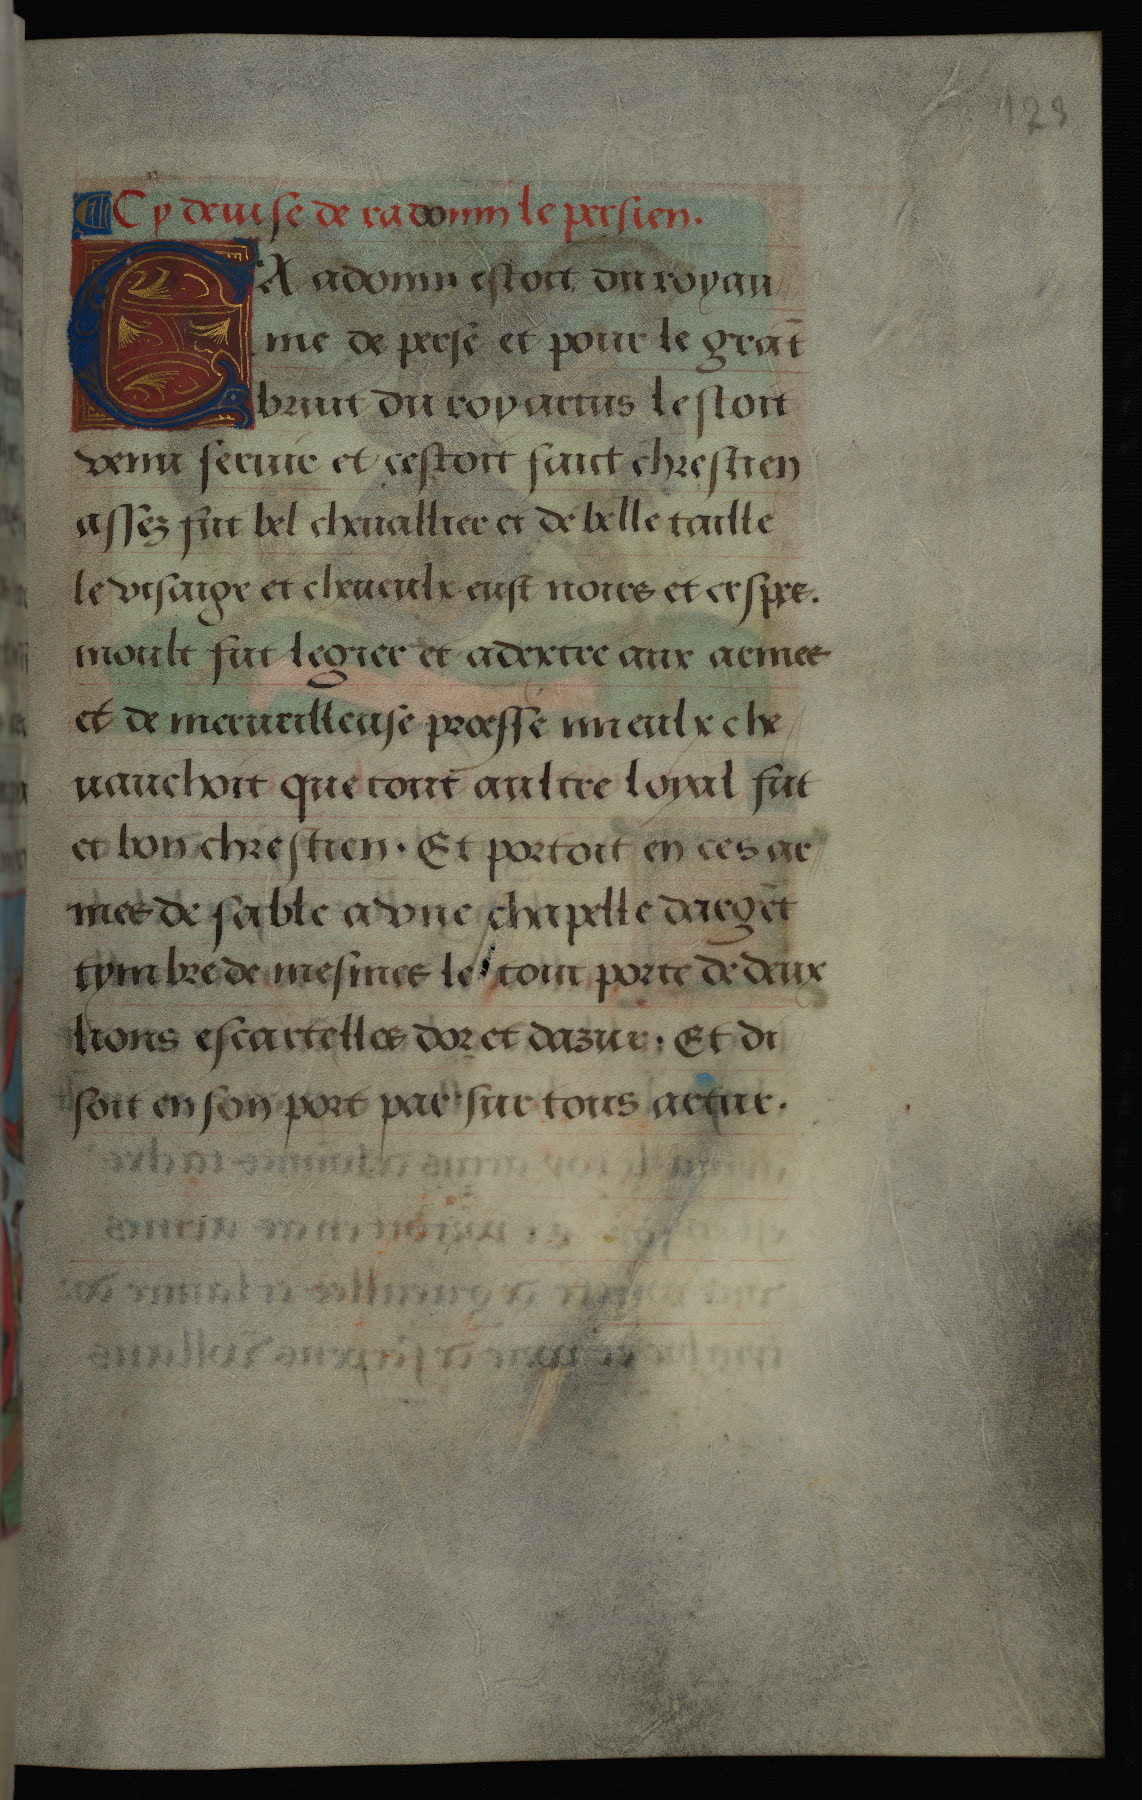 123
Cy deuise de radonin le persien.
RA adonin estoit du royau
me de perse et pour le grāt
bruit du roy artus lestoit
venu seruir et cestoit faict chrestien
assez fut bel cheuallier et de belle taille
le visaige et cheueulx eust noirs et crspes.
moult fut legier et adextre aux armes
et de merueilleuse proesse mieulx che
uauchoit que tout aultre loyal fut
et bon chrestien. Et portoit en ces ar
mes de sable a vne chapelle dargēt
tymbre de mesmes le tout porte de deux
lions escartelles dor et dazur. Et di
soit en son port par sur tous artur.